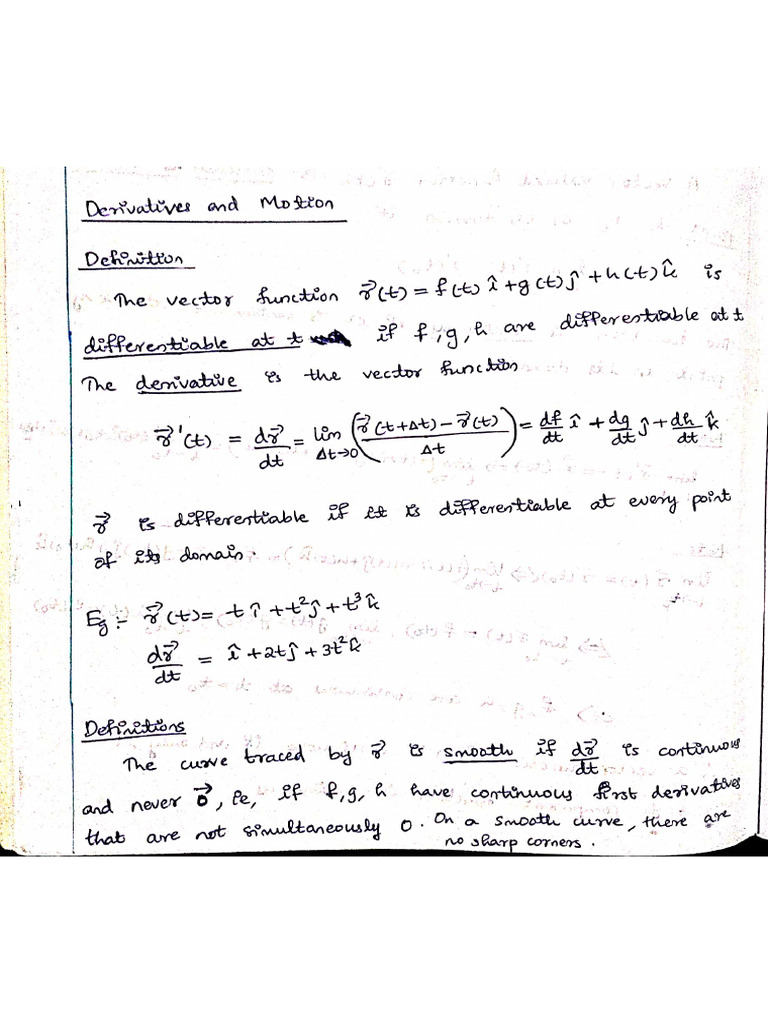 Derivatives and Motion
Definition
The vector function r⃗(t) = f(t) î + g(t) ĵ + h(t) k̂ is
differentiable at t if f, g, h are differentiable at t
The derivative is the vector function
r⃗'(t) = dr⃗/dt = lim Δt→0 ( (r⃗(t+Δt) − r⃗(t)) / Δt ) = df/dt î + dg/dt ĵ + dh/dt k̂
r⃗ is differentiable if it is differentiable at every point
of its domain.
Eg :- r⃗(t) = t î + t² ĵ + t³ k̂
dr⃗/dt = î + 2t ĵ + 3t² k̂
Definitions
The curve traced by r⃗ is smooth if dr⃗/dt is continuous
and never 0⃗, ie, if f, g, h have continuous first derivatives
that are not simultaneously 0. On a smooth curve, there are
no sharp corners.